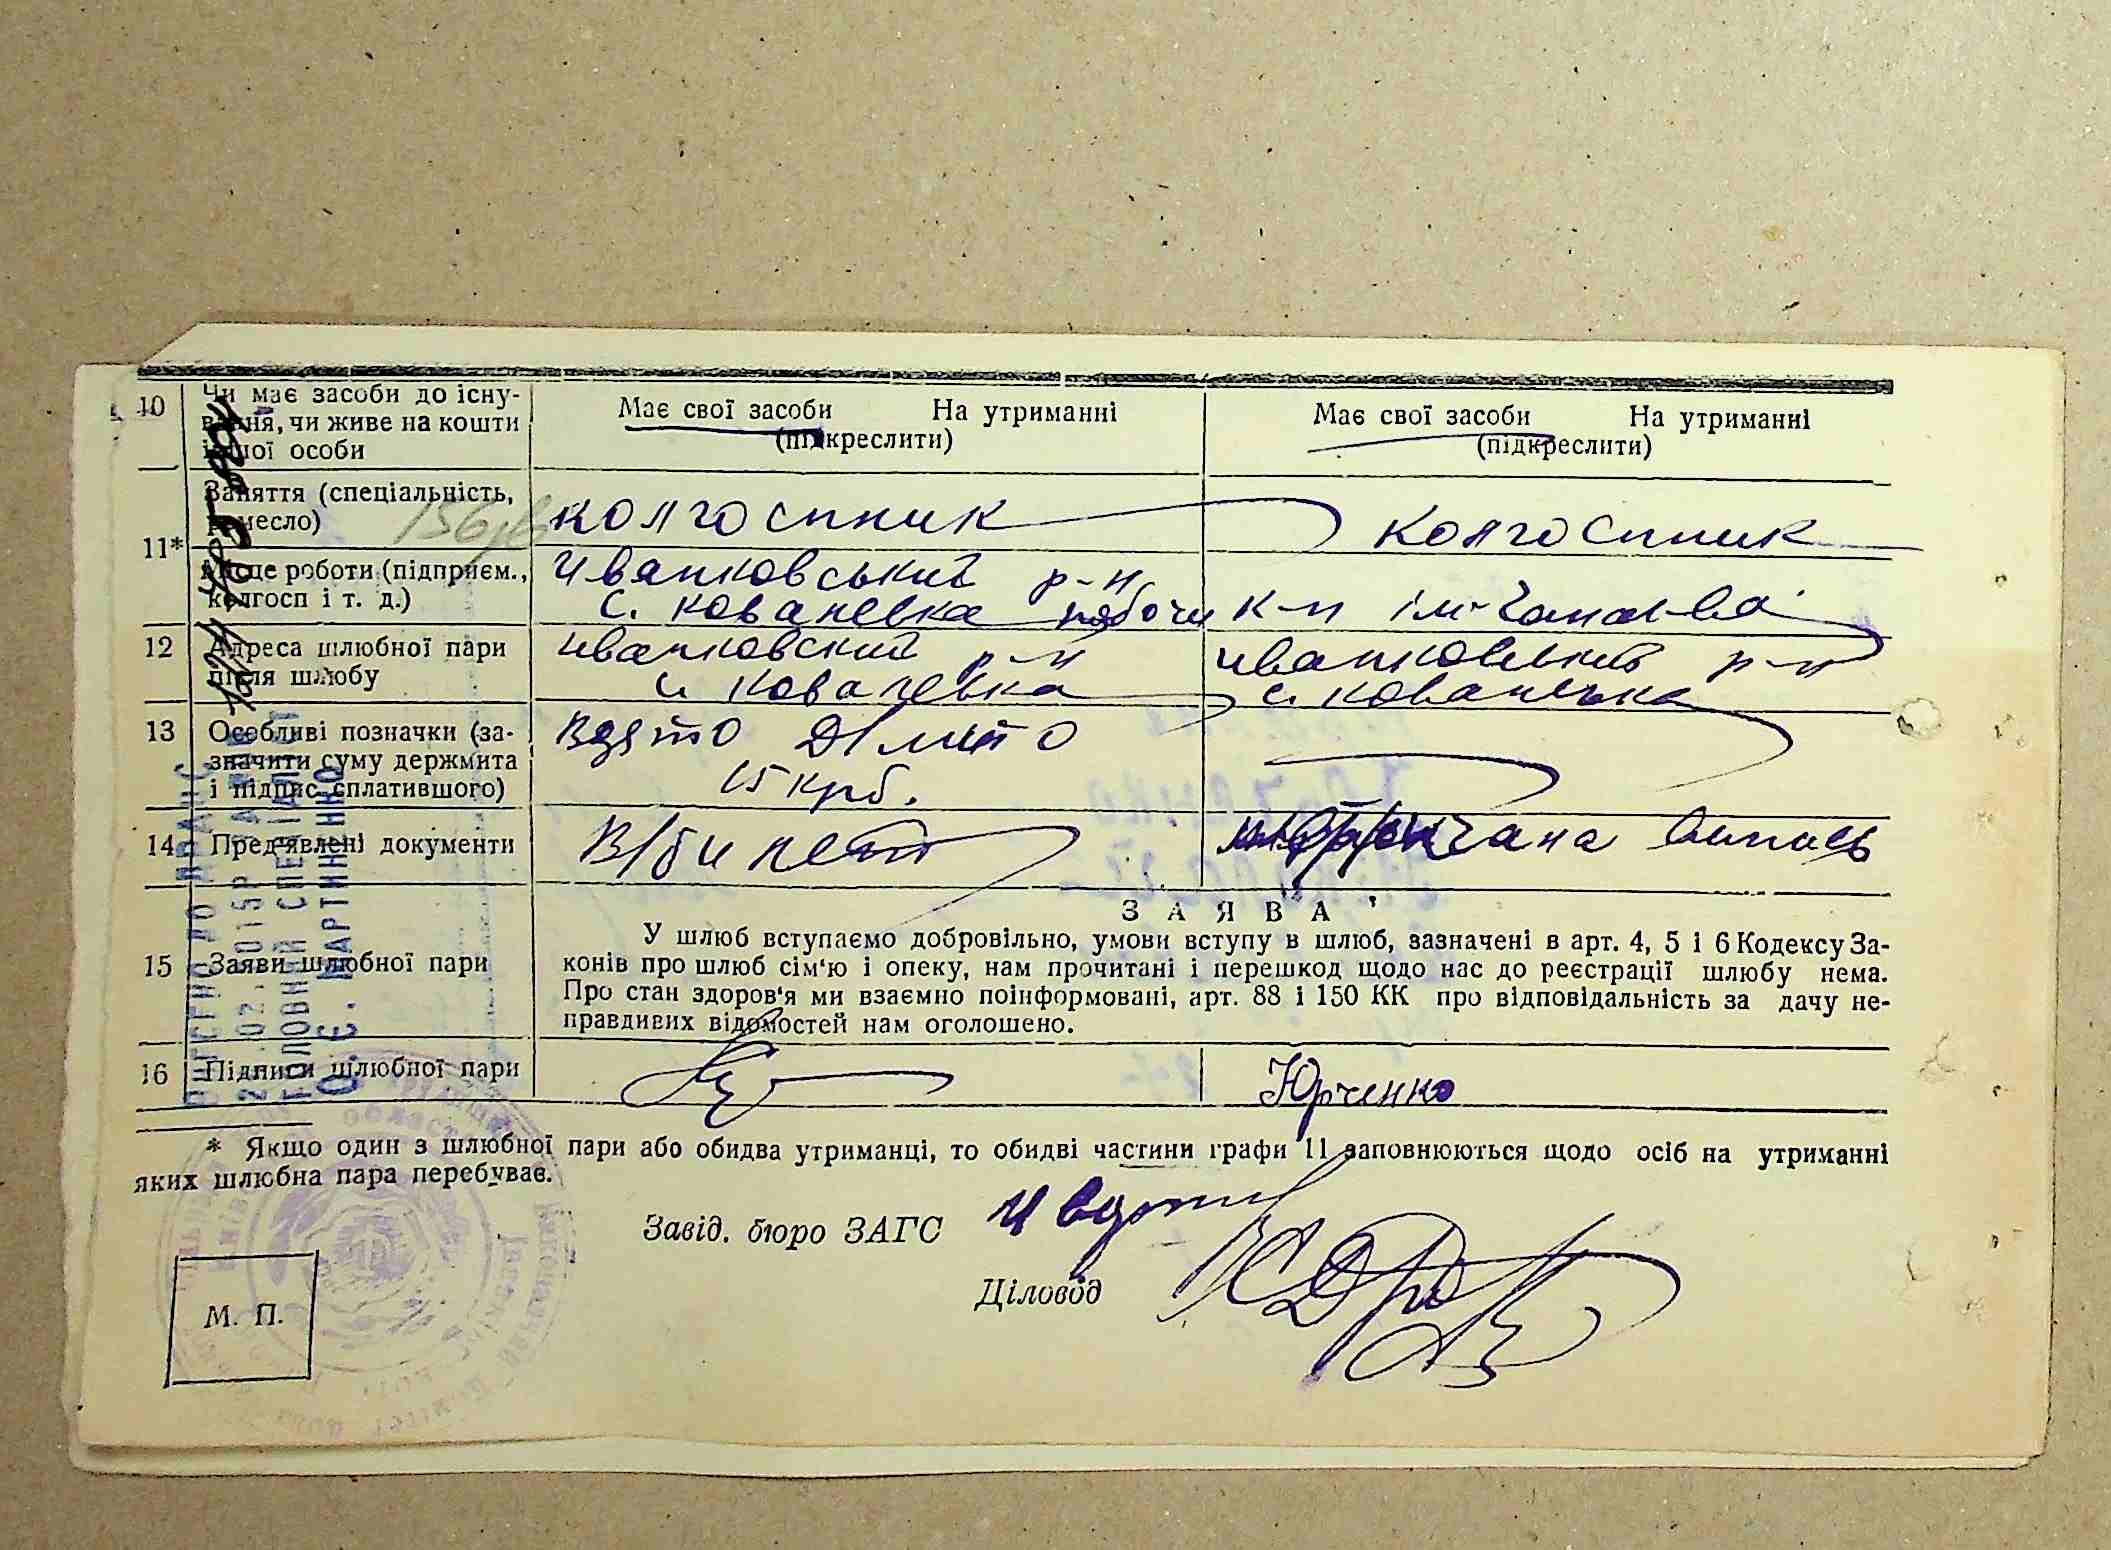 10 Чи має засоби до існу-
вання, чи живе на кошти
іншої особи
Має свої засоби На утриманні
(підкреслити)
Має свої засоби На утриманні
(підкреслити)
11*
Заняття (спеціальність,
ремесло)
колгоспник
колгоспник
Місце роботи (підприєм.,
колгосп і т. д.)
Иванковський р-н
с. Кованевка
к-п ім.
12 Адреса шлюбної пари
після шлюбу
Иванковский р-н
с. Кованевка
Иванковський р-н
с. Кованевка
13 Особливі позначки (за-
значити суму держмита
і підпис сплатившого)
Взято
15 крб.
14 Пред'явлені документи
В/билет
15 Заяви шлюбної пари
ЗАЯВА
У шлюб вступаємо добровільно, умови вступу в шлюб, зазначені в арт. 4, 5 і 6 Кодексу За-
конів про шлюб сім'ю і опеку, нам прочитані і перешкод щодо нас до реєстрації шлюбу нема.
Про стан здоров'я ми взаємно поінформовані, арт. 88 і 150 КК про відповідальність за дачу не-
правдивих відомостей нам оголошено.
16 Підписи шлюбної пари
Юрченко
* Якщо один з шлюбної пари або обидва утриманці, то обидві частини графи 11 заповнюються щодо осіб на утриманні
яких шлюбна пара перебуває.
Завід. бюро ЗАГС
Діловод
М. П.
ВНЕСЕНО ДО ДРАЦС
ГОЛОВНИЙ СПЕЦІАЛІСТ
О. Є. МАРТИНЕНКО